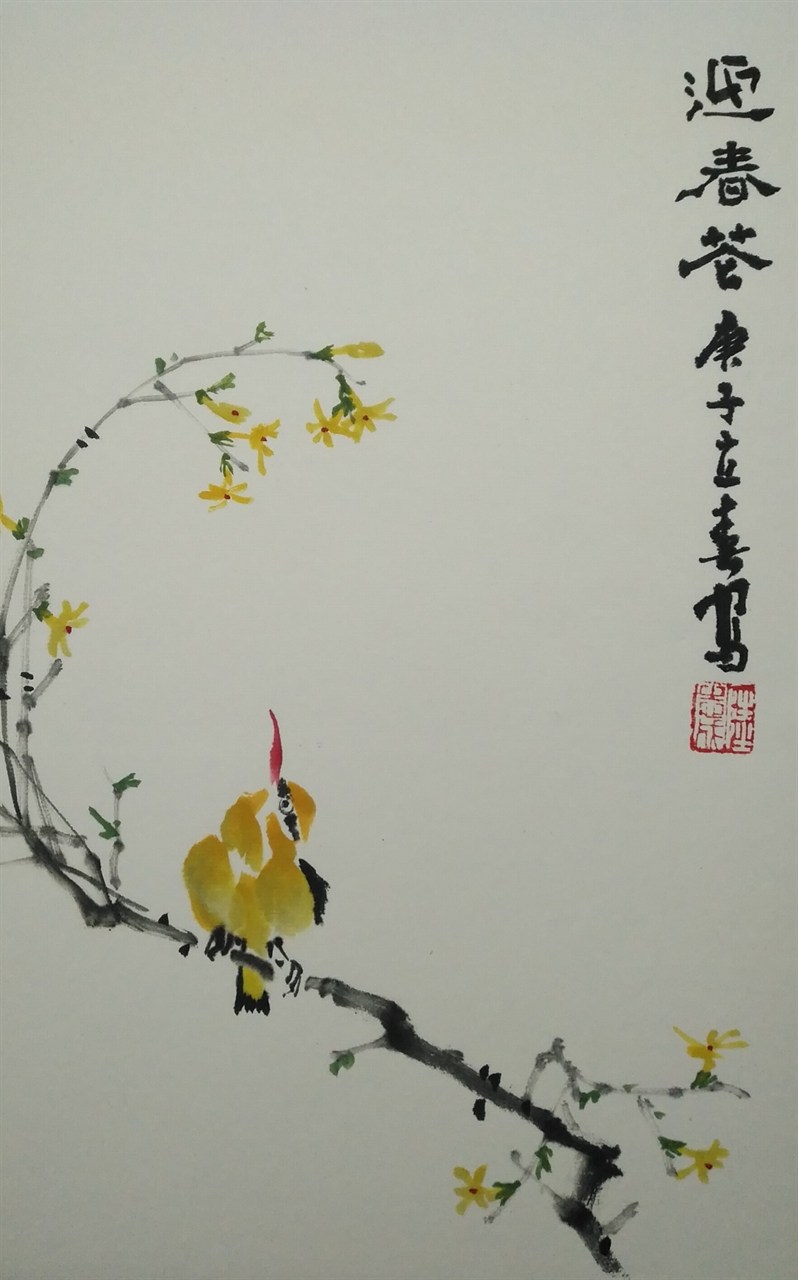 迎春花庚子立春写